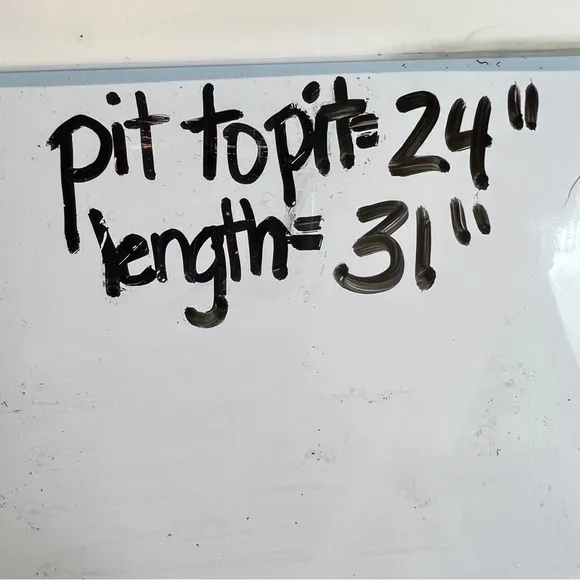 pit to pit= 24"
length= 31"